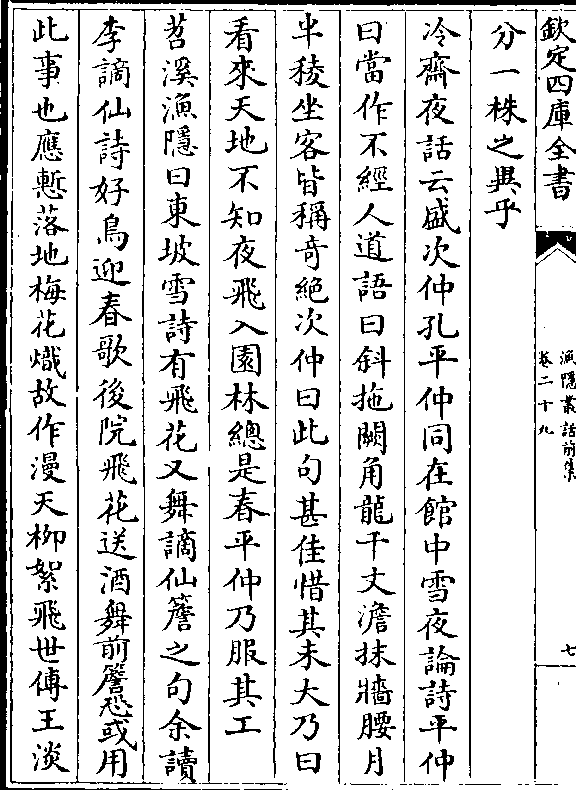 欽定四庫全書
漁隱叢話前集
卷二十九
七
分一株之異乎
冷齋夜話云盛次仲孔平仲同在館中雪夜論詩平仲
曰當作不經人道語曰斜拖闕角龍千丈澹抹牆腰月
半稜坐客皆稱奇絶次仲曰此句甚佳惜其未大乃曰
看來天地不知夜飛入園林總是春平仲乃服其工
苕溪漁隱曰東坡雪詩有飛花又舞謫仙簷之句余讀
李謫仙詩好鳥迎春歌後院飛花送酒舞前簷恐或用
此事也應慙落地梅花熾故作漫天柳絮飛世傅王淡